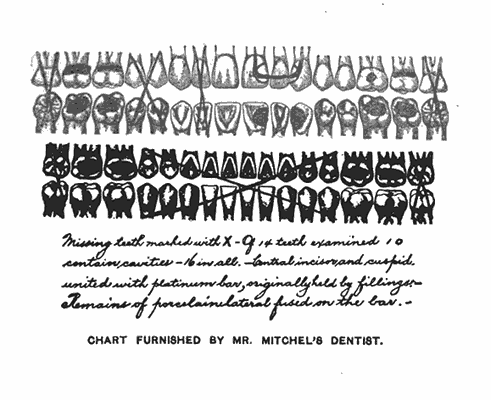 Missing teeth marked with X - Of 14 teeth examined 10
contain cavities - 16 in all. - Central incisor and cuspid
united with platinum bar, originally held by fillings. -
Remains of porcelain lateral fused on the bar. -
CHART FURNISHED BY MR. MITCHEL'S DENTIST.